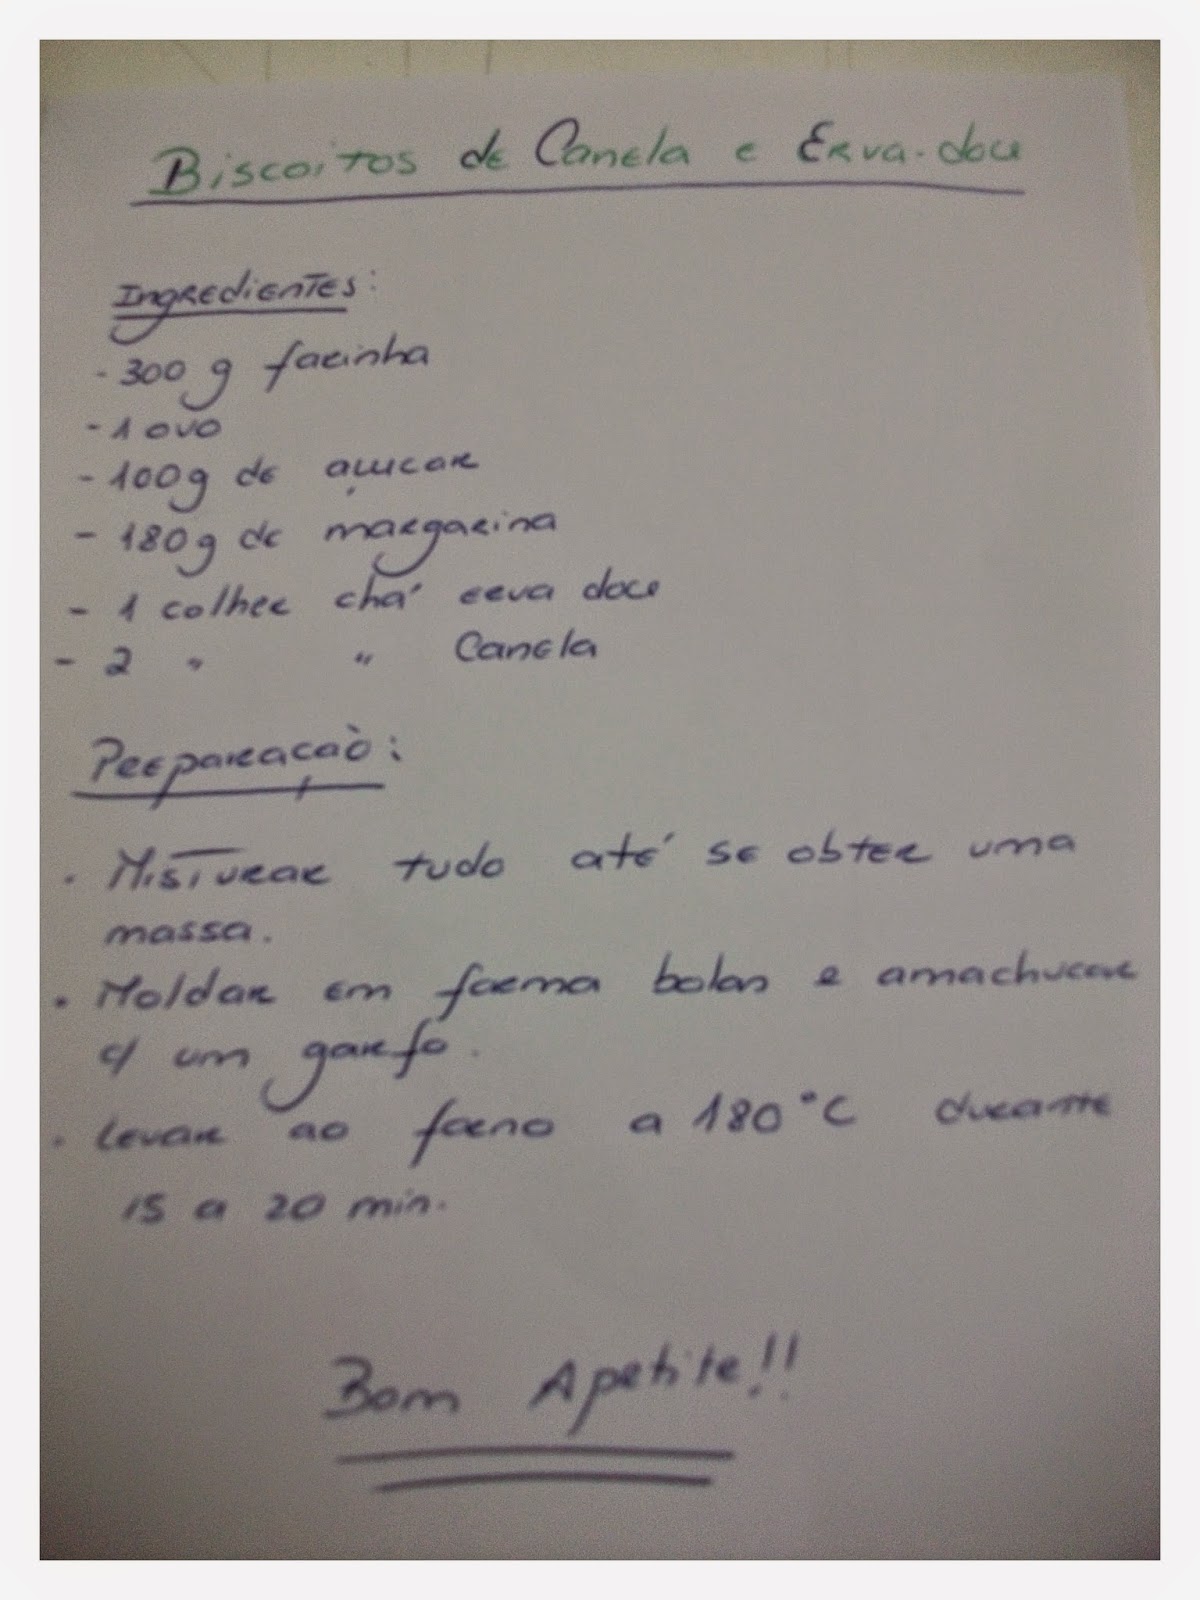 Biscoitos de Canela e Erva-doce
Ingredientes:
- 300 g farinha
- 1 ovo
- 100g de açucar
- 180g de margarina
- 1 colher chá erva doce
- 2 " " Canela
Preparação:
. Misturar tudo até se obter uma
massa.
. Moldar em forma bolas e amachucar
c/ um garfo.
. Levar ao forno a 180°C durante
15 a 20 min.
Bom Apetite!!